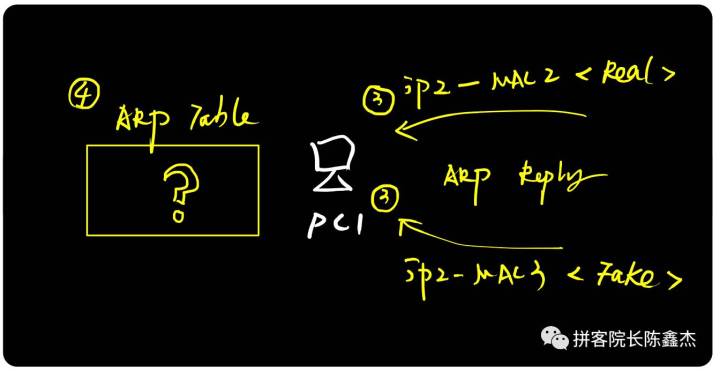 ④
ARP Table
?
PC1
③ ip2 - MAC2 <Real>
ARP Reply
③
ip2 - MAC3 <Fake>
拼客院长陈鑫杰